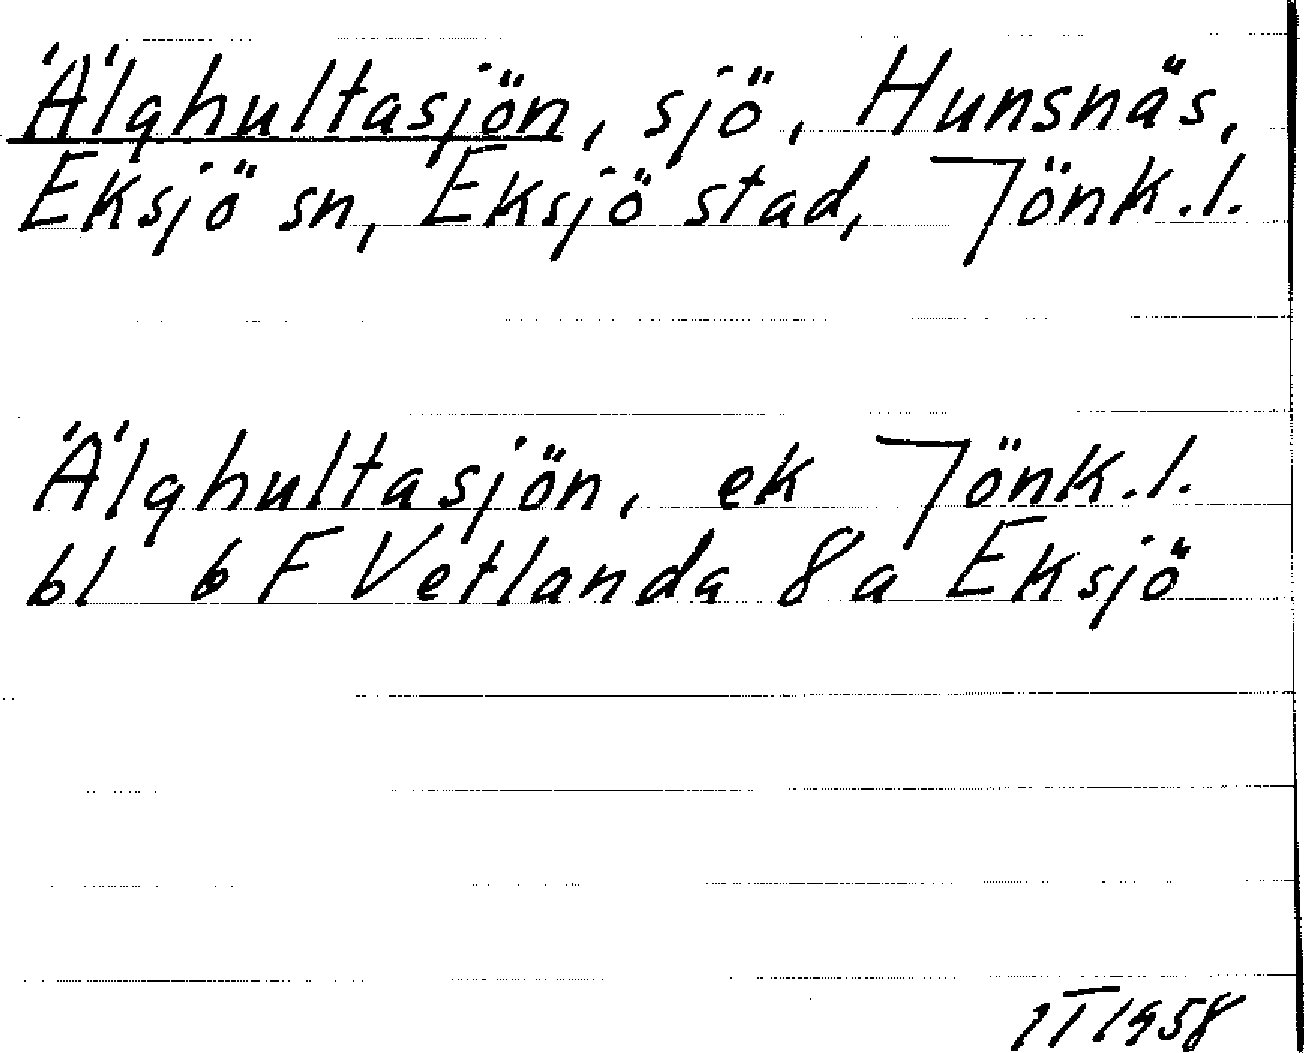 Älghultasjön, sjö, Hunsnäs,
Eksjö sn, Eksjö stad, Jönk.l.
Älghultasjön, ek Jönk.l.
bl 6F Vetlanda 8a Eksjö
1958